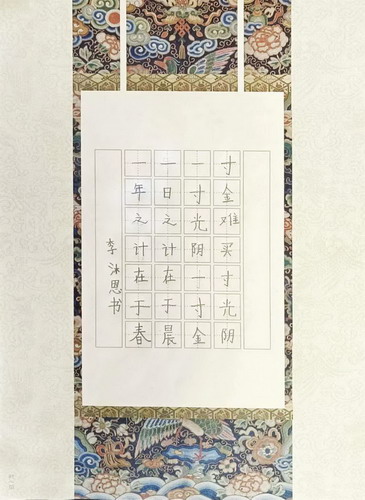 一年之计在于春
一日之计在于晨
一寸光阴一寸金
寸金难买寸光阴
李沐恩书